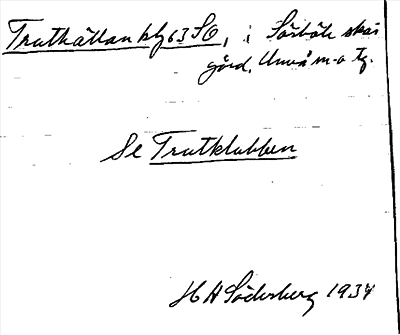 Truthällan blz 63 SO, i Sörböle skär
gård, Umeå m-o tg.
Se Trutklubben
H A Söderberg 1934